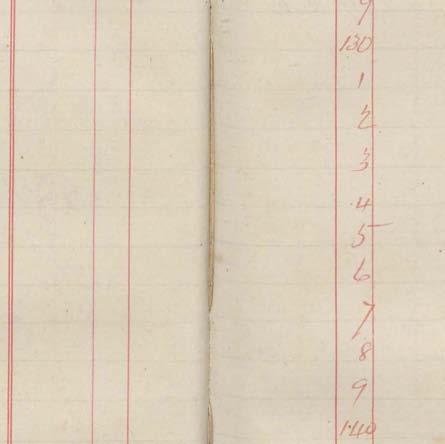 9
130
1
2
3
4
5
6
7
8
9
140